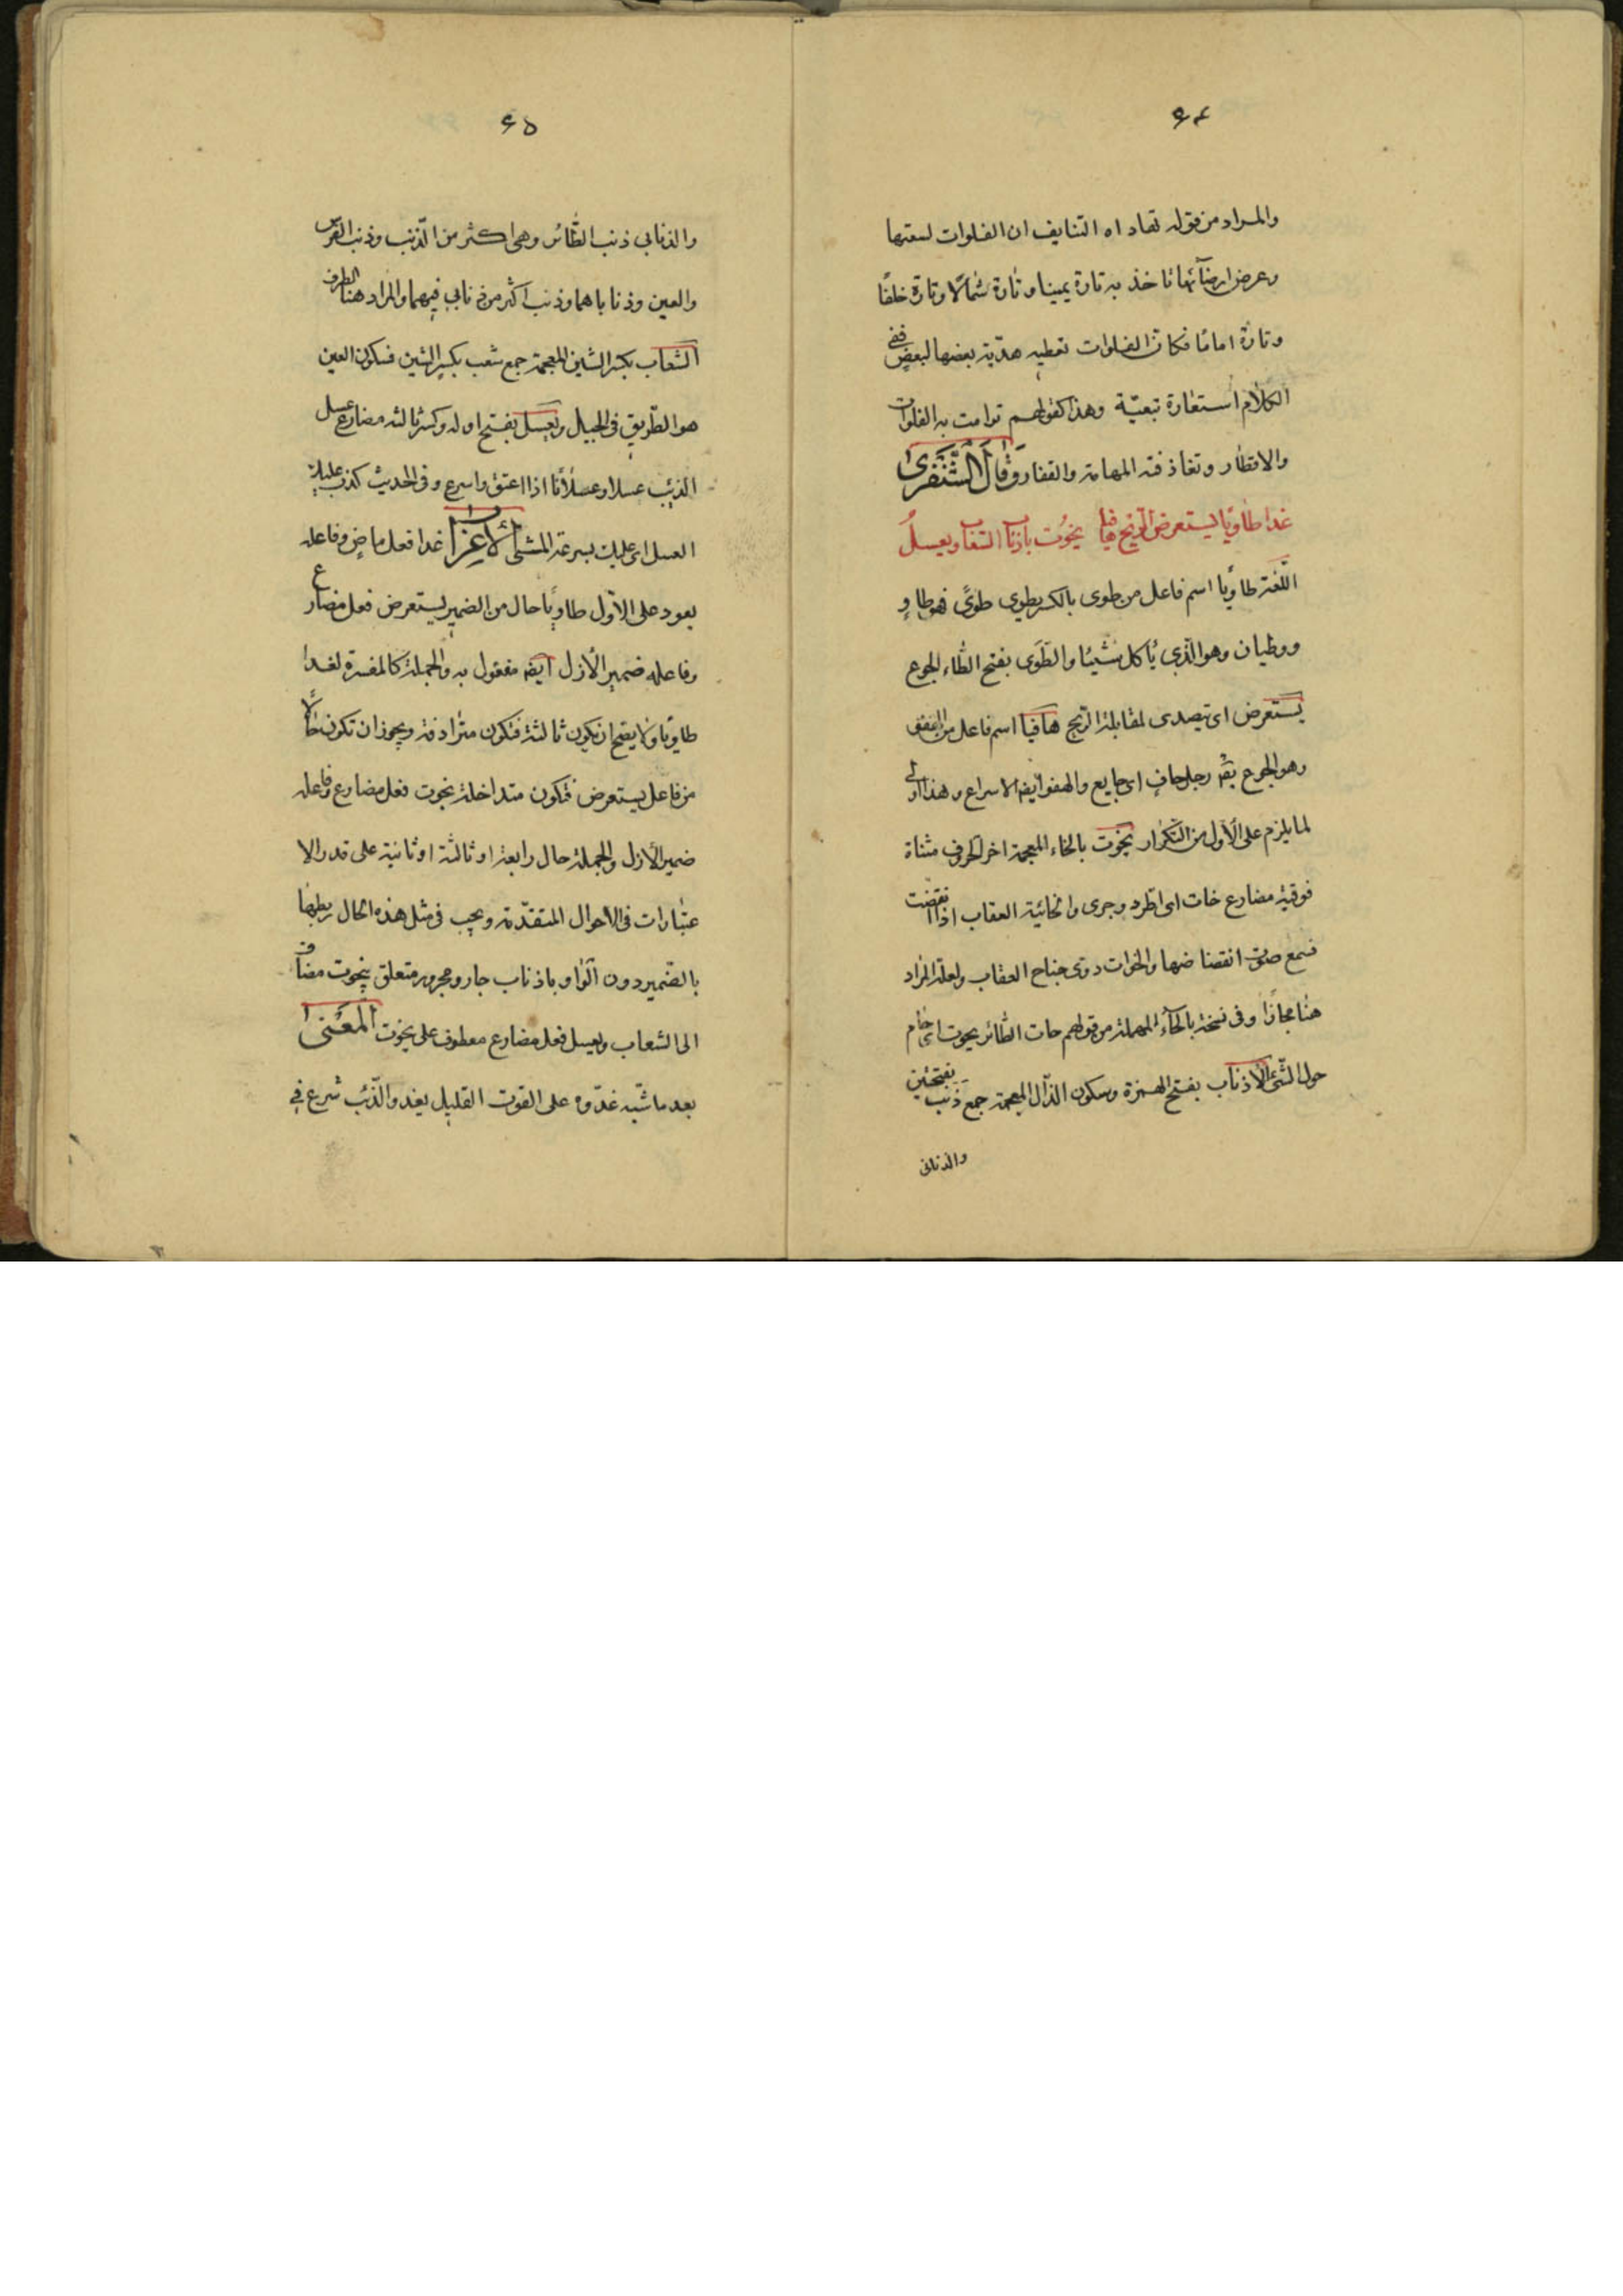 ٦٤
والمراد من قوله تهاداه التنايف ان الفلوات لسعتها
وعرض ارضآئها تاخذ به تارة يمينا وتارة شمالًا وتارة خلفًا
وتارة امامًا فكان الفلوات تعطيه هديّة بعضها لبعض ففى
الكلام استعارة تبعيّة وهذا كقولهم ترامت به الفلوات
والاقطار وتقاذفته المهامه والقفار وقال الشنفرى
غدا طاويًا يستعرض الريح هافيا يخوت باذناب الشعاب ويعسل
اللغة طاويًا اسم فاعل من طوى بالكسر يطوى طوىً فهو طاوٍ
وطيان وهو الذى ياكل شيئا والطوى بفتح الطاء الجوع
يستعرض اى يتصدى لمقابلة الريح هافيا اسم فاعل من الهفو
وهو الجوع يقه رجل هافٍ اى جايع والهفو ايضه الاسراع وهذا اولى
لما يلزم على الأول من التكرار يخوت بالخاء المعجمة اخر الحروف مثناة
فوقية مضارع خات اى اطرد وجرى والخائتة العقاب اذا انقضت
فسمع صوت انقضاضها والخوات دوى جناح العقاب ولعله المراد
هنا مجازًا وفى نسخة بالحآء المهملة من قولهم حات الطائر يحوت اى حام
حول الشئ الاذناب بفتح الهمزة وسكون الذال المعجمة جمع ذنب بفتحتين
والذنابى
٦٥
والذنابى ذنب الطائر وهى اكثر من الذنب وذنب الفرس
والعين وذناباهما وذنب اكثر من ذنابى فيهما والمراد هنا الطرف
الشعاب بكسر الشين المعجمة جمع شعب بكسر الشين فسكون العين
هو الطريق فى الجبل ويعسل بفتح اوله وكسر ثالثه مضارع عسل
الذيب عسلا وعسلانًا اذا اعنق واسرع وفى الحديث كذب عليك
العسل اى عليك بسرعة المشى الاعراب غدا فعل ماض وفاعله
يعود على الأول طاويًا حال من الضمير يستعرض فعل مضارع
وفاعله ضمير الأزل ايضه مفعول به والجملة كالمفسرة لغدا
طاويًا ولا يصح ان يكون ثالثة فتكون مترادفة ويجوز ان تكون حالًا
من فاعل يستعرض فتكون متداخلة يخوت فعل مضارع وفاعله
ضمير الأزل والجملة حال رابعة او ثالثة او ثانية على قدر الا
عتبارات فى الاحوال المتقدّمة ويجب فى مثل هذه الحال ربطها
بالضمير دون الواو باذناب جار ومجرور متعلق بيخوت مضاف
الى الشعاب ويعسل فعل مضارع معطوف على يخوت المعنى
بعد ما شبّه غدّوه على القوت القليل بغدو الذئب شرع فى